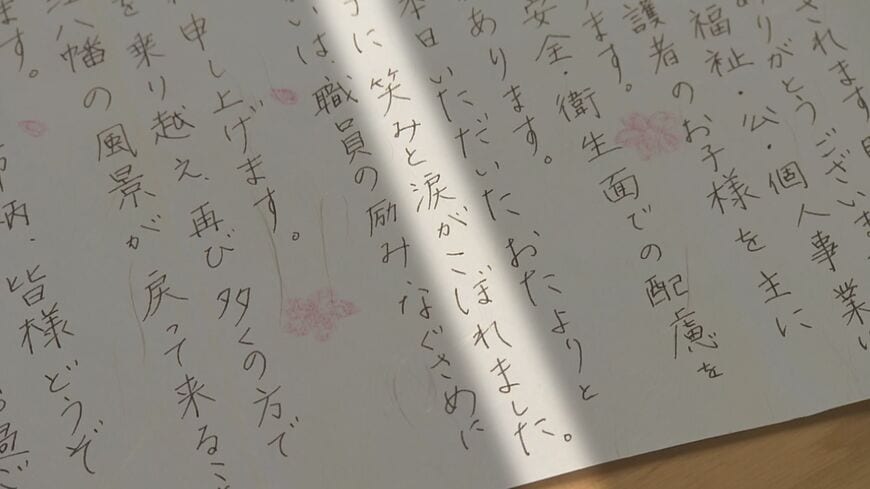 されます
ありがとうございま
業い
福祉・公・個人事
護者のお子様を主に
ます。
安全・衛生面での配慮を
あります。
本日いただいたおたよりと
に笑みと涙がこぼれました。
いは、職員の励みなぐさめに
申し上げます。
を乗り越え、再び多くの方で
八幡の風景が戻って来るこ
ます。
節柄、皆様どうぞ